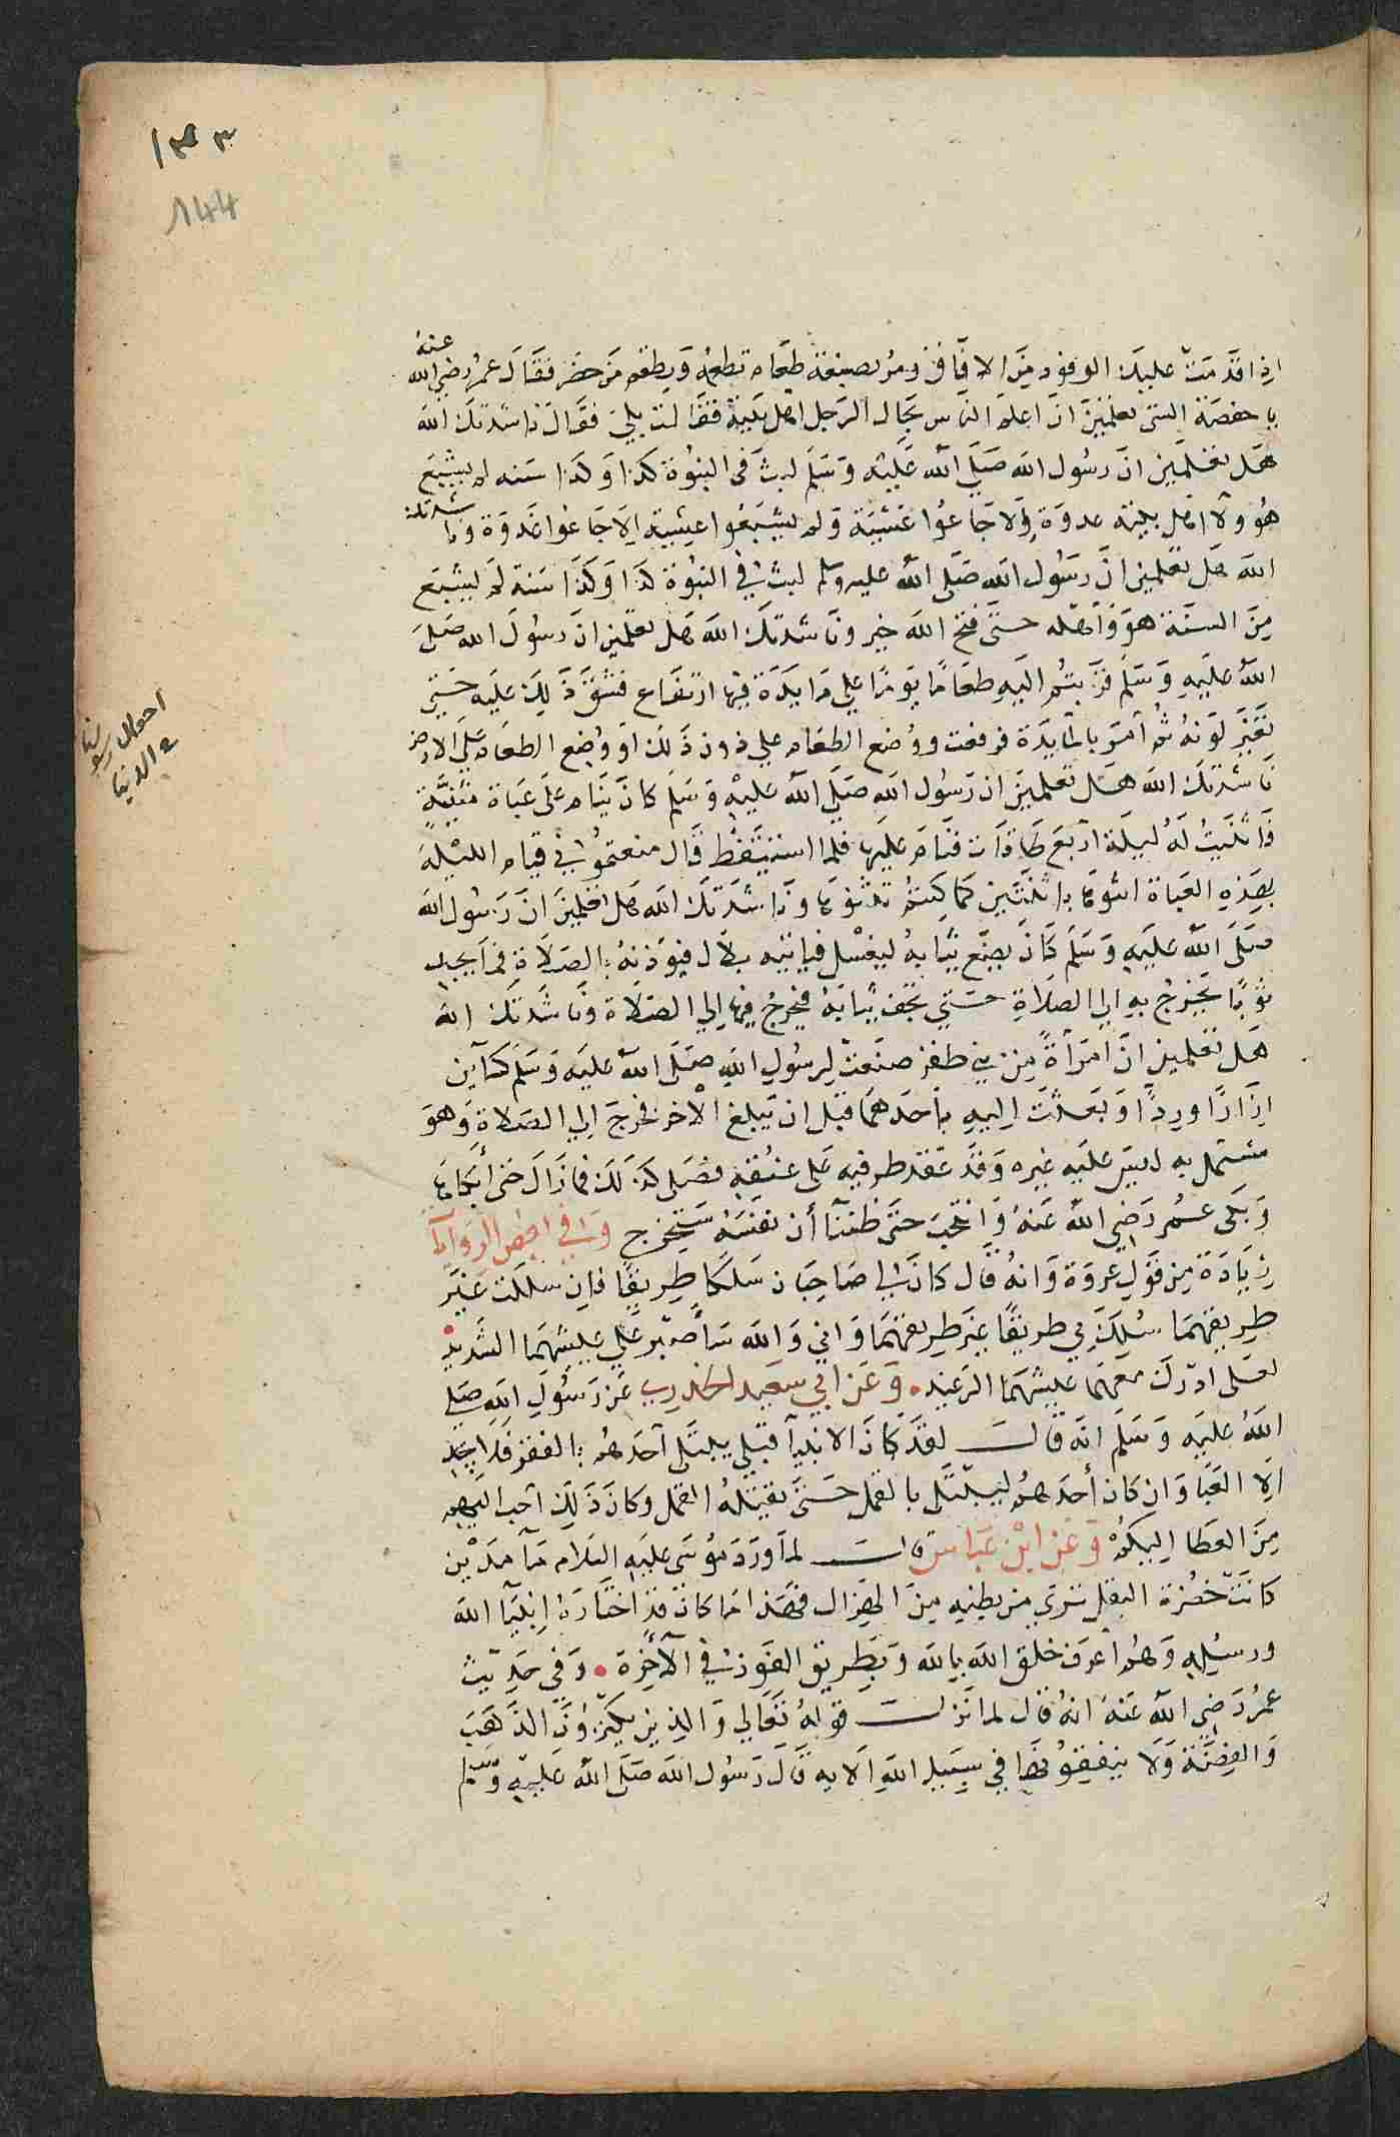 ١٣٣
١٤٤
اذا قدمت عليك الوفود من الافاق ومر بصنعة طعام تطعمه ويطعم من حضر فقال عمر رضي الله عنه
يا حفصة الستى تعلمين ان اعلم الناس بحال الرجل اهل بيته فقالت بلى فقال ناشدتك الله
هل تعلمين ان رسول الله صلى الله عليه وسلم لبث فى النبوة كذا وكذا سنه لم يشبع
هو ولا اهل بيته غدوة الا جاعوا عشية ولم يشبعوا عشية الا جاعوا غدوة وناشدتك
الله هل تعلمين ان رسول الله صلى الله عليه وسلم لبث في النبوة كذا وكذا سنة لم يشبع
من السنة هو واهله حتى فتح الله خيبر وناشدتك الله هل تعلمين ان رسول الله صلى
الله عليه وسلم قربتم اليه طعاما يوما على مايدة فيها ارتفاع فشق ذلك عليه حتى
تغير لونه ثم امر بالمايدة فرفعت ووضع الطعام على دون ذلك او وضع الطعام على الارض
ناشدتك الله هل تعلمين ان رسول الله صلى الله عليه وسلم كان ينام على عباة مثنية
فاثنيت له ليلة اربع طاقات فنام عليها فلما استيقظ قال منعتموني قيام الليلة
بهذه العباة اثنوها باثنتين كما كنتم تثنوها وناشدتك الله هل تعلمين ان رسول الله
صلى الله عليه وسلم كان يضع ثيابه ليغسل فياتيه بلال فيوذنه بالصلاة فما يجد
ثوبا يخرج به الى الصلاة حتى تجف ثيابه فيخرج فيها الى الصلاة وناشدتك الله
هل تعلمين ان امراة من بني ظفر صنعت لرسول الله صلى الله عليه وسلم كساين
ازارا وردا وبعثت اليه باحدهما قبل ان يبلغ الاخر فخرج الى الصلاة وهو
مشتمل به ليس عليه غيره وقد عقد طرفيه على عنقه فصلى كذلك فما زال حتى ابكاها
وبكى عمر رضي الله عنه وانتحب حتى ظننا أن نفسه ستخرج وفي بعض الروايات
زيادة من قول عروة وانه قال كان لي صاحبان سلكا طريقا فان سلكت غير
طريقهما سلك بي طريقا غير طريقهما واني والله ساصبر على عيشهما الشديد
لعلى ادرك معهما عيشهما الرغيد • وعن ابي سعيد الخدري عن رسول الله صلى
الله عليه وسلم انه قال لقد كان الانبيآ قبلي يبتلى احدهم بالفقر فلا يجد
الا العبا وان كان أحدهم ليبتلى بالقمل حتى يقتله القمل وكان ذلك احب اليهم
من العطا اليكم وعن ابن عباس قال لما ورد موسى عليه السلام مآ مدين
كانت خضرة البقل ترى من بطنه من الهزال فهذا ما كان قد اختاره انبيآ الله
ورسله وهم أعرف خلق الله بالله وبطريق الفوز في الآخرة • وفي حديث
عمر رضي الله عنه انه قال لما نزلت قوله تعالى والذين يكنزون الذهب
والفضة ولا ينفقونها في سبيل الله الايه قال رسول الله صلى الله عليه وسلم
احوال رسولنا
في الدنيا